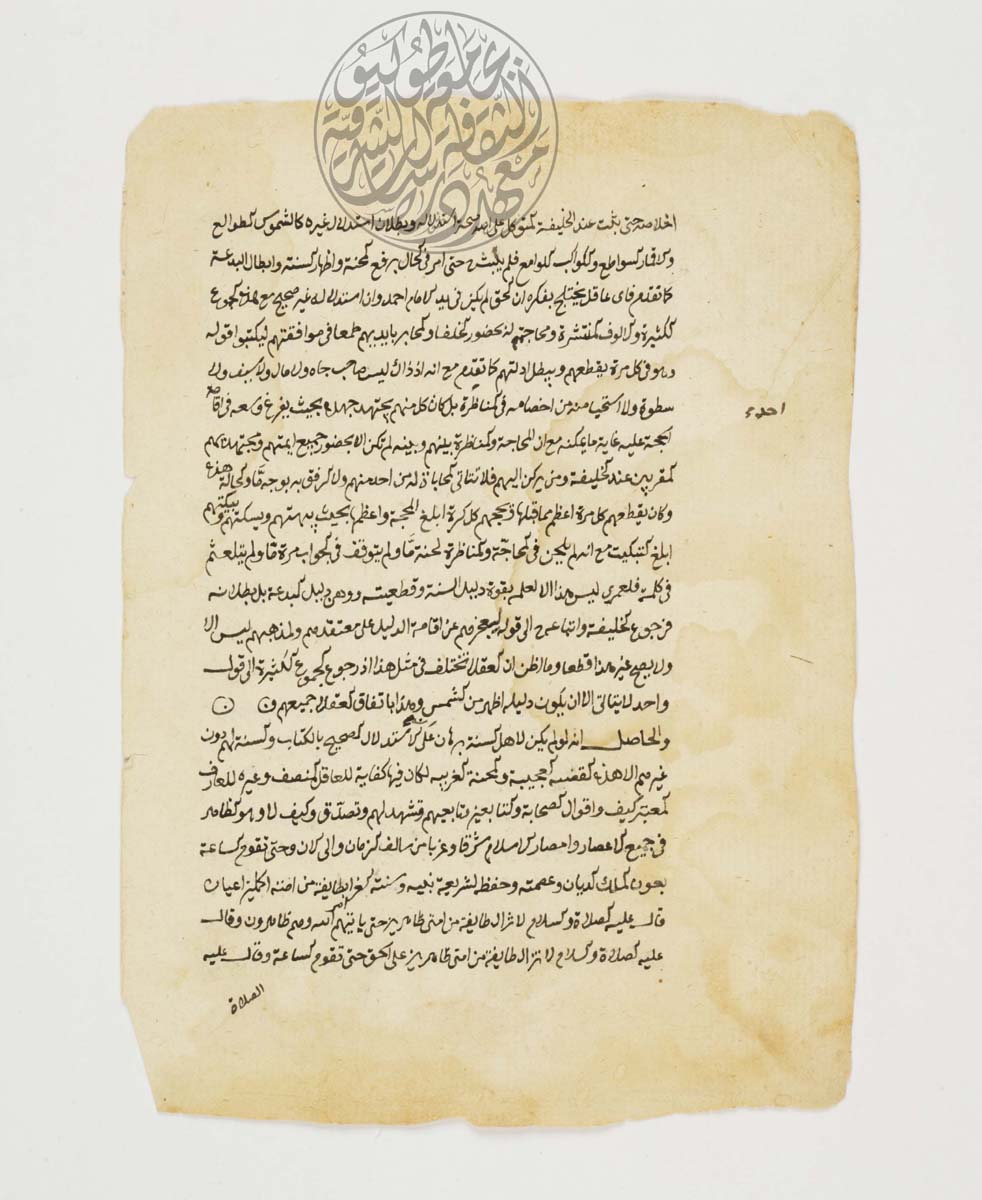 اخلاصه حتى ثبت عند الخليفة المتوكل على الله صحة استدلاله وبطلان استدلال غيره كالشموس الطوالع
والاقمار السواطع والكواكب اللوامع فلم يلبث حتى امر في الحال برفع المحنة واظهار السنة وابطال البدعة
كما تقدم فاي عاقل يختلج بفكره ان الحق لم يكن في يد الامام احمد وان استدلاله غير صحيح مع هذه الجموع
الكثيرة والالوف المنتشرة ومحاجتهم له بحضور الخلفا والمحابر بايديهم طمعا في موافقتهم ليكتبوا قوله
وهو في كل مرة يقطعهم ويبطل ادلتهم كما تقدم مع انه اذ ذاك ليس صاحب جاه ولا مال ولا سيف ولا
سطوة ولا استحيا منه من اخصامه في المناظرة بل كان كل منهم يجتهد جهده بحيث يفرغ وسعه في اقامة
احدى
الحجة عليه غاية ما يمكنه مع ان المحاجة والمناظرة بينهم وبينه لم تكن الا بحضور جميع ايمتهم ومجتهديهم
المقربين عند الخليفة ومن يركن اليهم فلا تتاتى المحاباة له من احد منهم ولا الرفق به بوجه ما والحالة هذه
وكان يقطعهم كل مرة اعظم مما قبلها ويحجهم كل كرة ابلغ الحجة واعظمها بحيث يبهتهم ويسكتهم ويبكتهم
ابلغ التبكيت مع انه لم يلحن في المحاجة والمناظرة لحنة ما ولم يتوقف في الجواب مرة ما ولم يتلعثم
في كلمة فلعمري ليس هذا الا لعلمه بقوة دليل السنة وقطعيته ووهن دليل البدعة بل بطلانه
فرجوع الخليفة واتباعه الى قوله لعجزهم عن اقامة الدليل على معتقدهم ولمذهبهم ليس الا
ولا يصح غير هذا قطعا وما اظن ان العقلا تختلف في مثل هذا اذ رجوع الجموع الكثيرة الى قول
واحد لا يتاتى الا ان يكون دليله اظهر من الشمس وهذا باتفاق العقلا جميعهم
والحاصل انه لو لم يكن لاهل السنة برهان على الاستدلال الصحيح بالكتاب والسنة لهم دون
غيرهم الا هذه القصة العجيبة والمحنة الغريبه لكان فيها كفاية للعاقل المنصف وغيره للعارف
المعتبر كيف واقوال الصحابة والتابعين وتابعيهم تشهد لهم وتصدق وكيف لا وهو الظاهر
في جميع الاعصار وامصار الاسلام شرقا وغربا من سالف الزمان والى الان وحتى تقوم الساعة
بعون الملك الديان وعصمته وحفظه لشريعة نبيه وسنته الغرا بطايفة من امته اكملين اعيان
قال عليه الصلاة والسلام لا تزال طايفة من امتي ظاهرين حتى ياتيهم امر الله وهم ظاهرون وقال
عليه الصلاة والسلام لا تزال طايفة من امتي ظاهرين على الحق حتى تقوم الساعة وقال عليه
الصلاة